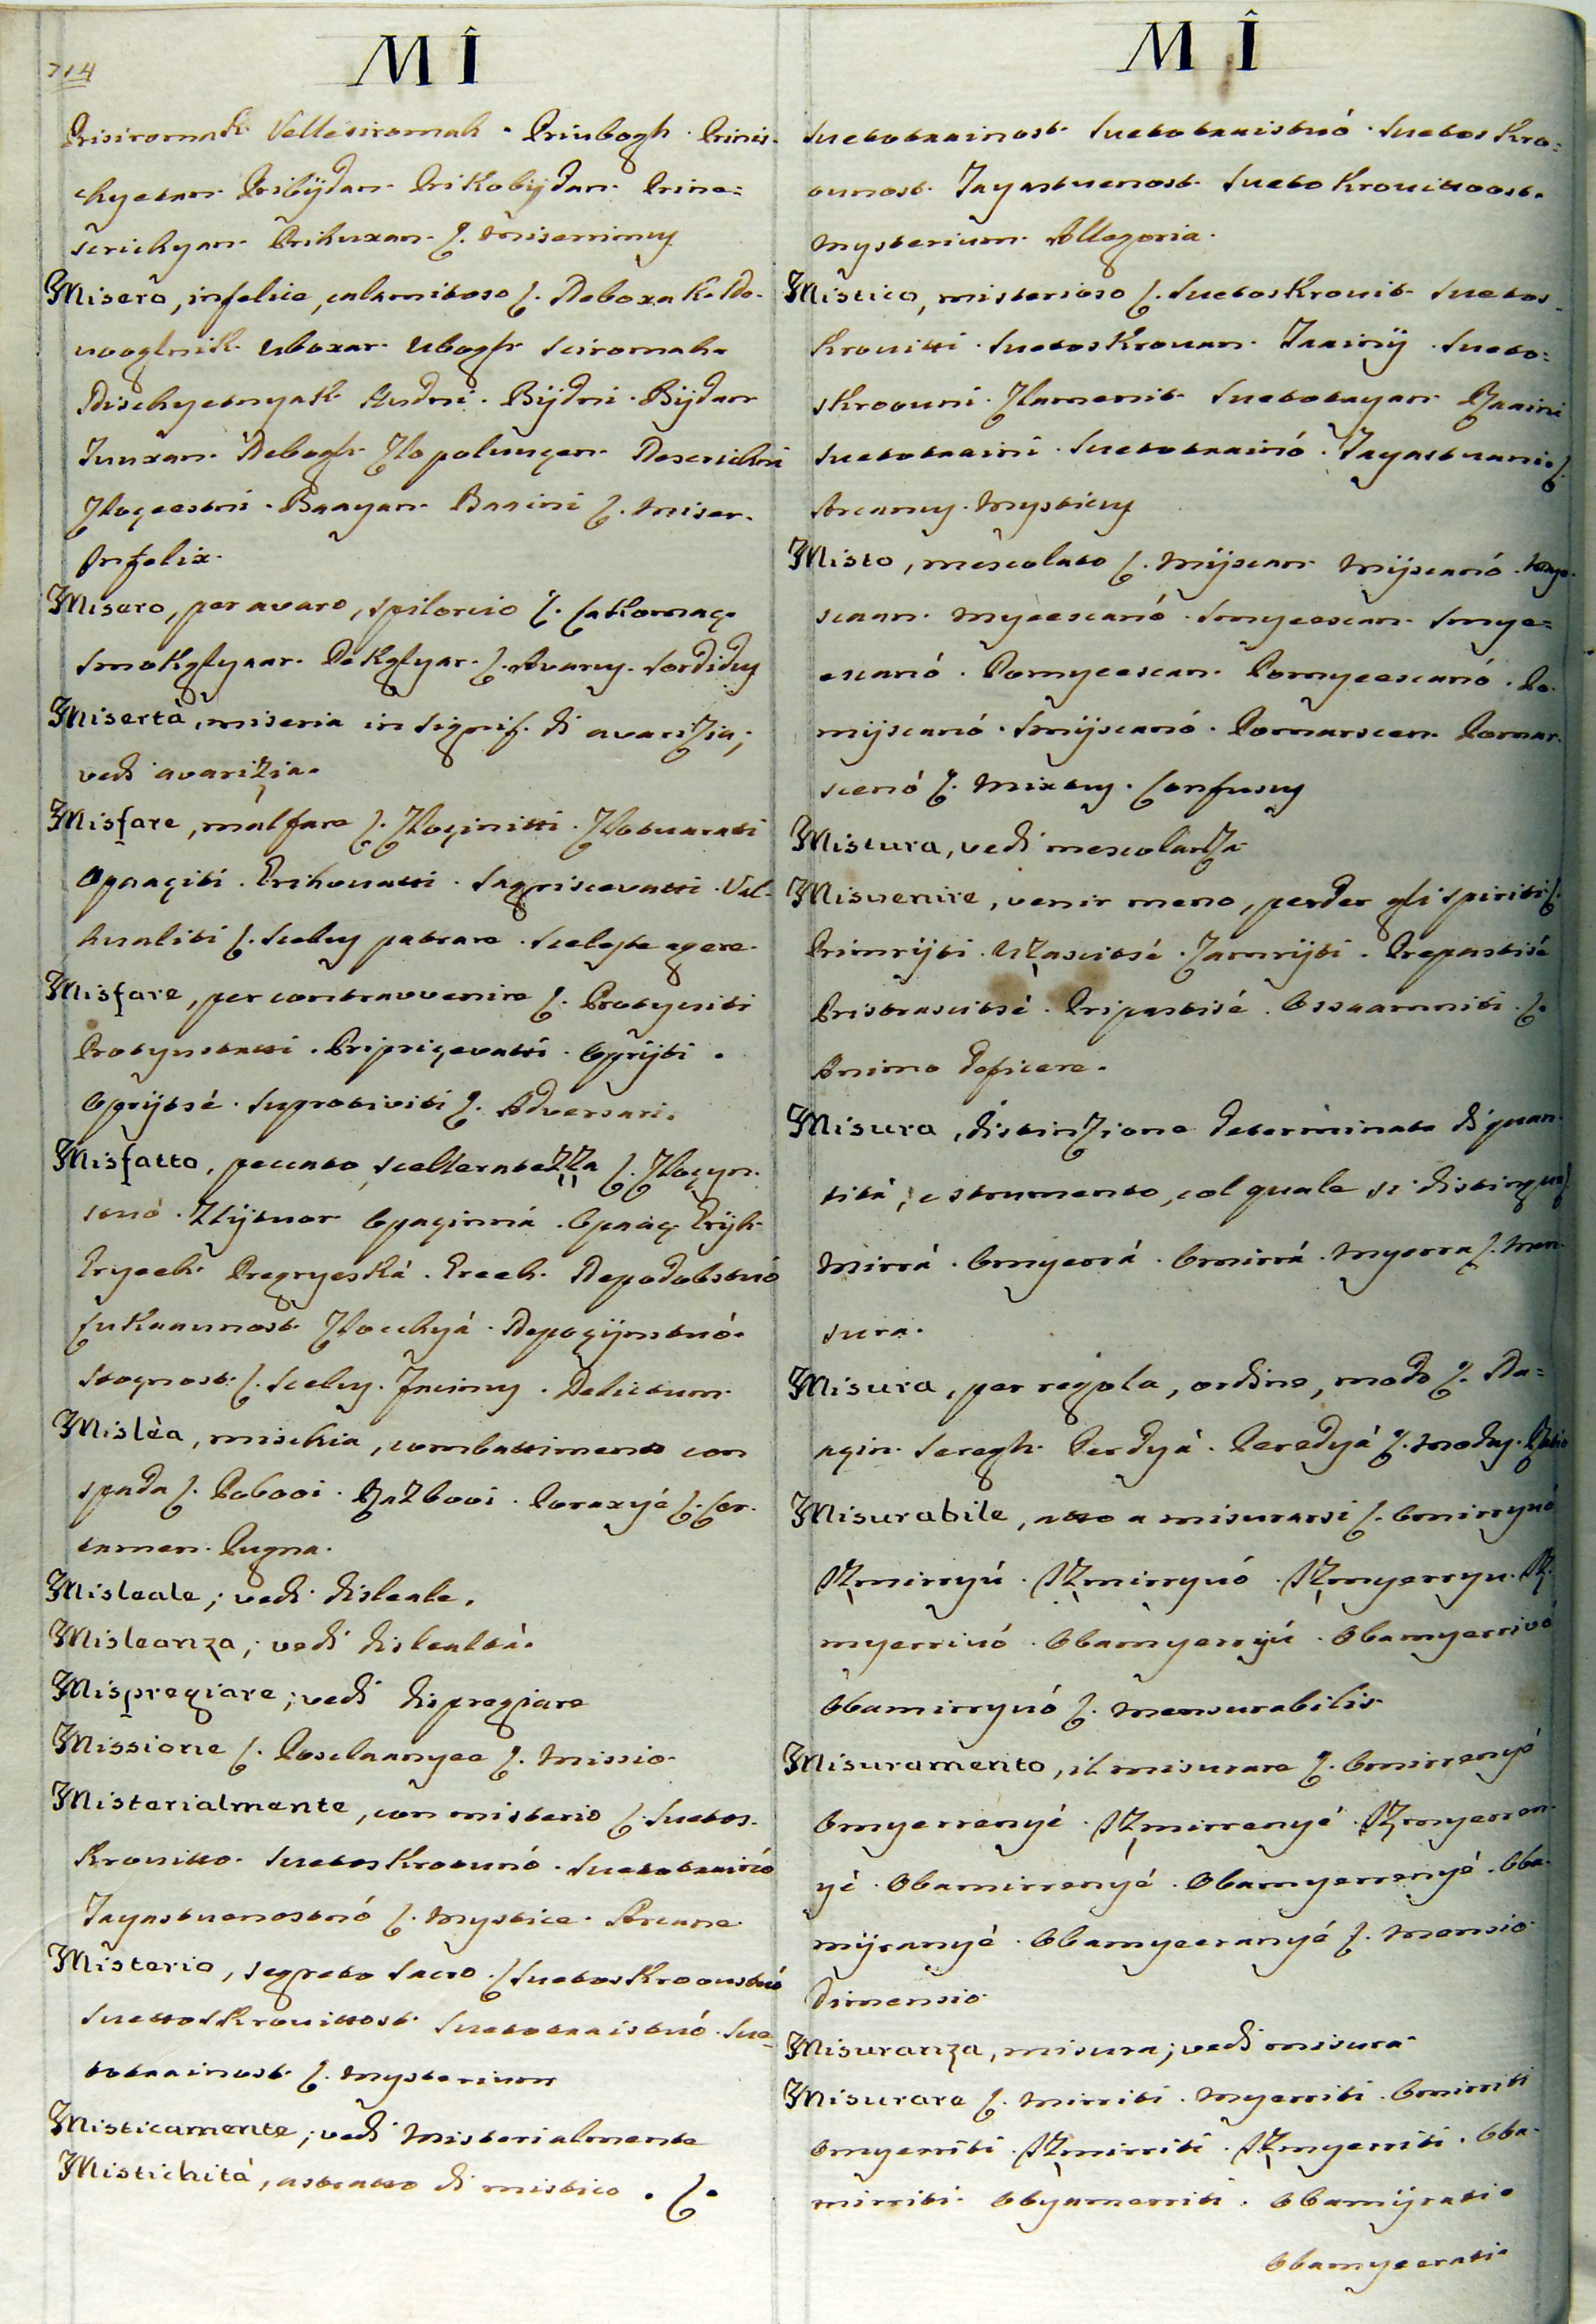 714
M Î
Prisiromak. Vellesiromah. Priubogh. Prinis-
chyetan. Pribijdan. Prikobijdan. Prine=
scrichyan. Prikuxan. ſ. Miserrimus
Misero, infelice, calamitoso ſ. Neboxak. Ne-
vooglnik. Uboxar. Ubogh. Sciromah.
Nischyetnyak. Hudni. Bijdni. Bijdan
Tuuxan. Nebogh. Zlopoluuçen. Nesrichni
Zloçestni. Baayan. Baaini ſ. Miser.
Infelix.
Misero, per avaro, spilorcio ſ. Lakomaç.
Smokglyaar. Dekglyar. ſ. Avarus. Sordidus
Misertà, miseria in signif. di avarizia;
vedi avarizia.
Misfare, malfare ſ. Zloçinitti. Zlotvaratti
Opaaçiti. Grihovatti. Sagriscevatti. Val-
hvaliti ſ. Scelus patrare. Sceleste agere.
Misfare, per contravvenire ſ. Protyviti
Protyvstatti. Pripriçevatti. Oprijti.
Oprijtsé. Suprotiviti ſ. Adversari.
Misfatto, peccato, scelleratezza ſ. Zloçyn-
stvó. Zlijtvor. Opaçinná. Opaaç. Grijh.
Gryeeh. Pregryeská. Greeh. Nepodobstvó
Lukaavnost. Zlocchyá. Nepoçijnstvó.
Stognost. ſ. Scelus. Facinus. Delictum.
Mislèa, mischia, combattimento con
spada ſ. Pobooi. Razbooi. Poraxyé ſ. Cer-
tamen. Pugna.
Misleale; vedi disleale.
Misleanza; vedi dislealtà.
Mispregiare; vedi dispregiare
Missione ſ. Poslaanyee ſ. Missio.
Misterialmente, con misterio ſ. Svetos-
krovitto. Svetoskrovnó. Svetotaainó
Tayastvenostnó ſ. Mystice. Arcane.
Misterio, segreto sacro. ſ Svetoskroovstvó
Svettoskrovittost. Svetotaaistvó. Sve-
totaainost. ſ. Mysterium
Misticamente; vedi Misterialmente
Mistichità, astratto di mistico. ſ.
M Î
Svetotaainost. Svetotaaistvó. Svetoskro=
ovnost. Tayastvenost. Svetokrovittoost.
Mysterium. Allegoria.
Mistico, misterioso ſ. Svetoskrovit. Svetos-
krovitti. Svetoskrovan. Taainij. Sveto=
skroovni. Zlamenit. Svetotayan. Raaini
Svetotaaini. Svetotaainó. Tayastvani. ſ.
Arcanus. Mysticus
Misto, mescolato ſ. Mijscan. Mijscanó. Mye-
scaan. Myeescanó. Smyeescan. Smye=
escanó. Pomyeescan. Pomyeescanó. Po-
mijscanó. Smijscanó. Pomarscen. Pomar-
scenó ſ. Mixtus. Confusus
Mistura, vedi mescolanza
Misvenire, venir meno, perder gli spiriti ſ.
Primrijti. Uzascitsé. Zamrijti. Prepastisé
Pristrascitsé. Pripastisé. Ossaamniti. ſ.
Animo deficere.
Misura, distinzione determinata di quan-
tità; e strumento, col quale si distingue ſ.
Mirrá. Omyerrá. Omirrá. Myerra ſ. Men-
sura.
Misura, per regola, ordine, modo ſ. Na=
açin. Seregh. Perdyá. Peredyá ſ. Modus. Ratio
Misurabile, atto a misurarsi ſ. Omirryvó
Izmirryú. Izmirryvó. Izmyerryu. Iz-
myerrivó. Obamyerryú. Obamyerrivó
Obamirryvó ſ. Mensurabilis.
Misuramento, il misurare ſ. Omirrenyé
Omyerrenyé. Izmirrenyé. Izmyerren-
yé. Obamirrenyé. Obamyerrenyé. Oba-
mijranyé. Obamyeeranyé ſ. Mensio
Dimensio
Misuranza, misura; vedi misura
Misurare ſ. Mirriti. Myerriti. Omirriti
Omyerriti. Izmirriti. Izmyerriti. Oba-
mirriti. Obyamerriti. Obamijrati.
Obamyeerati.